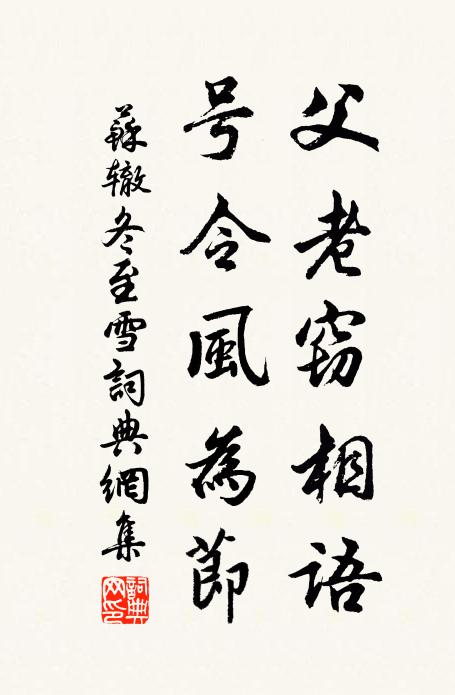 父老窃相語
号令風為節
蘇辙冬至雪詞典網集
詞典网印